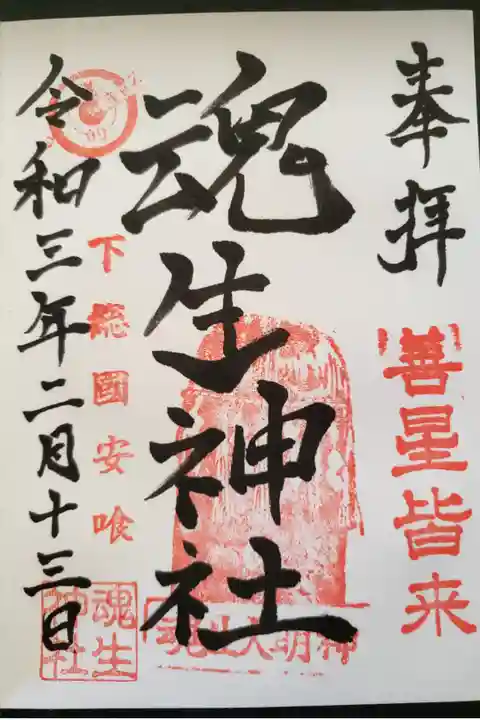 奉拝
善星皆来
魂生神社
魂生大明神
下總國安喰
令和三年二月十三日
魂生神社